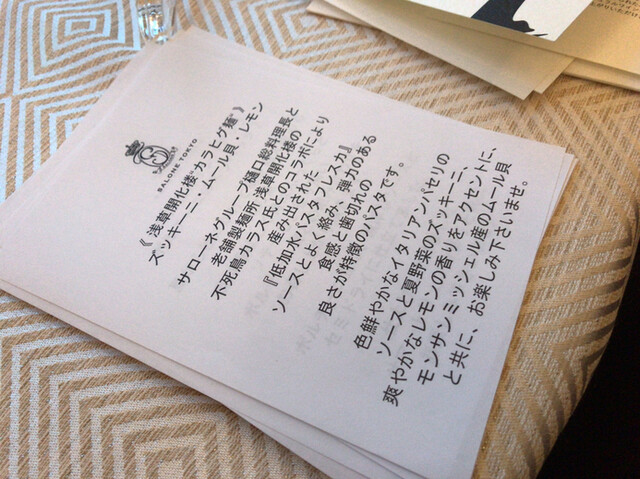 SALONE TOKYO
《 浅草開化楼"カラヒグ麺"》
ズッキーニ・ムール貝・レモン
サローネグループ樋口総料理長と
老舗製麺所 浅草開化楼の
不死鳥カラス氏とのコラボにより
産み出された
『低加水パスタフレスカ』
ソースとよく絡み、弾力のある
食感と歯切れの
良さが特徴のパスタです。
色鮮やかなイタリアンパセリの
ソースと夏野菜のズッキーニ、
爽やかなレモンの香りをアクセントに、
モンサンミッシェル産のムール貝
と共に、お楽しみ下さいませ。